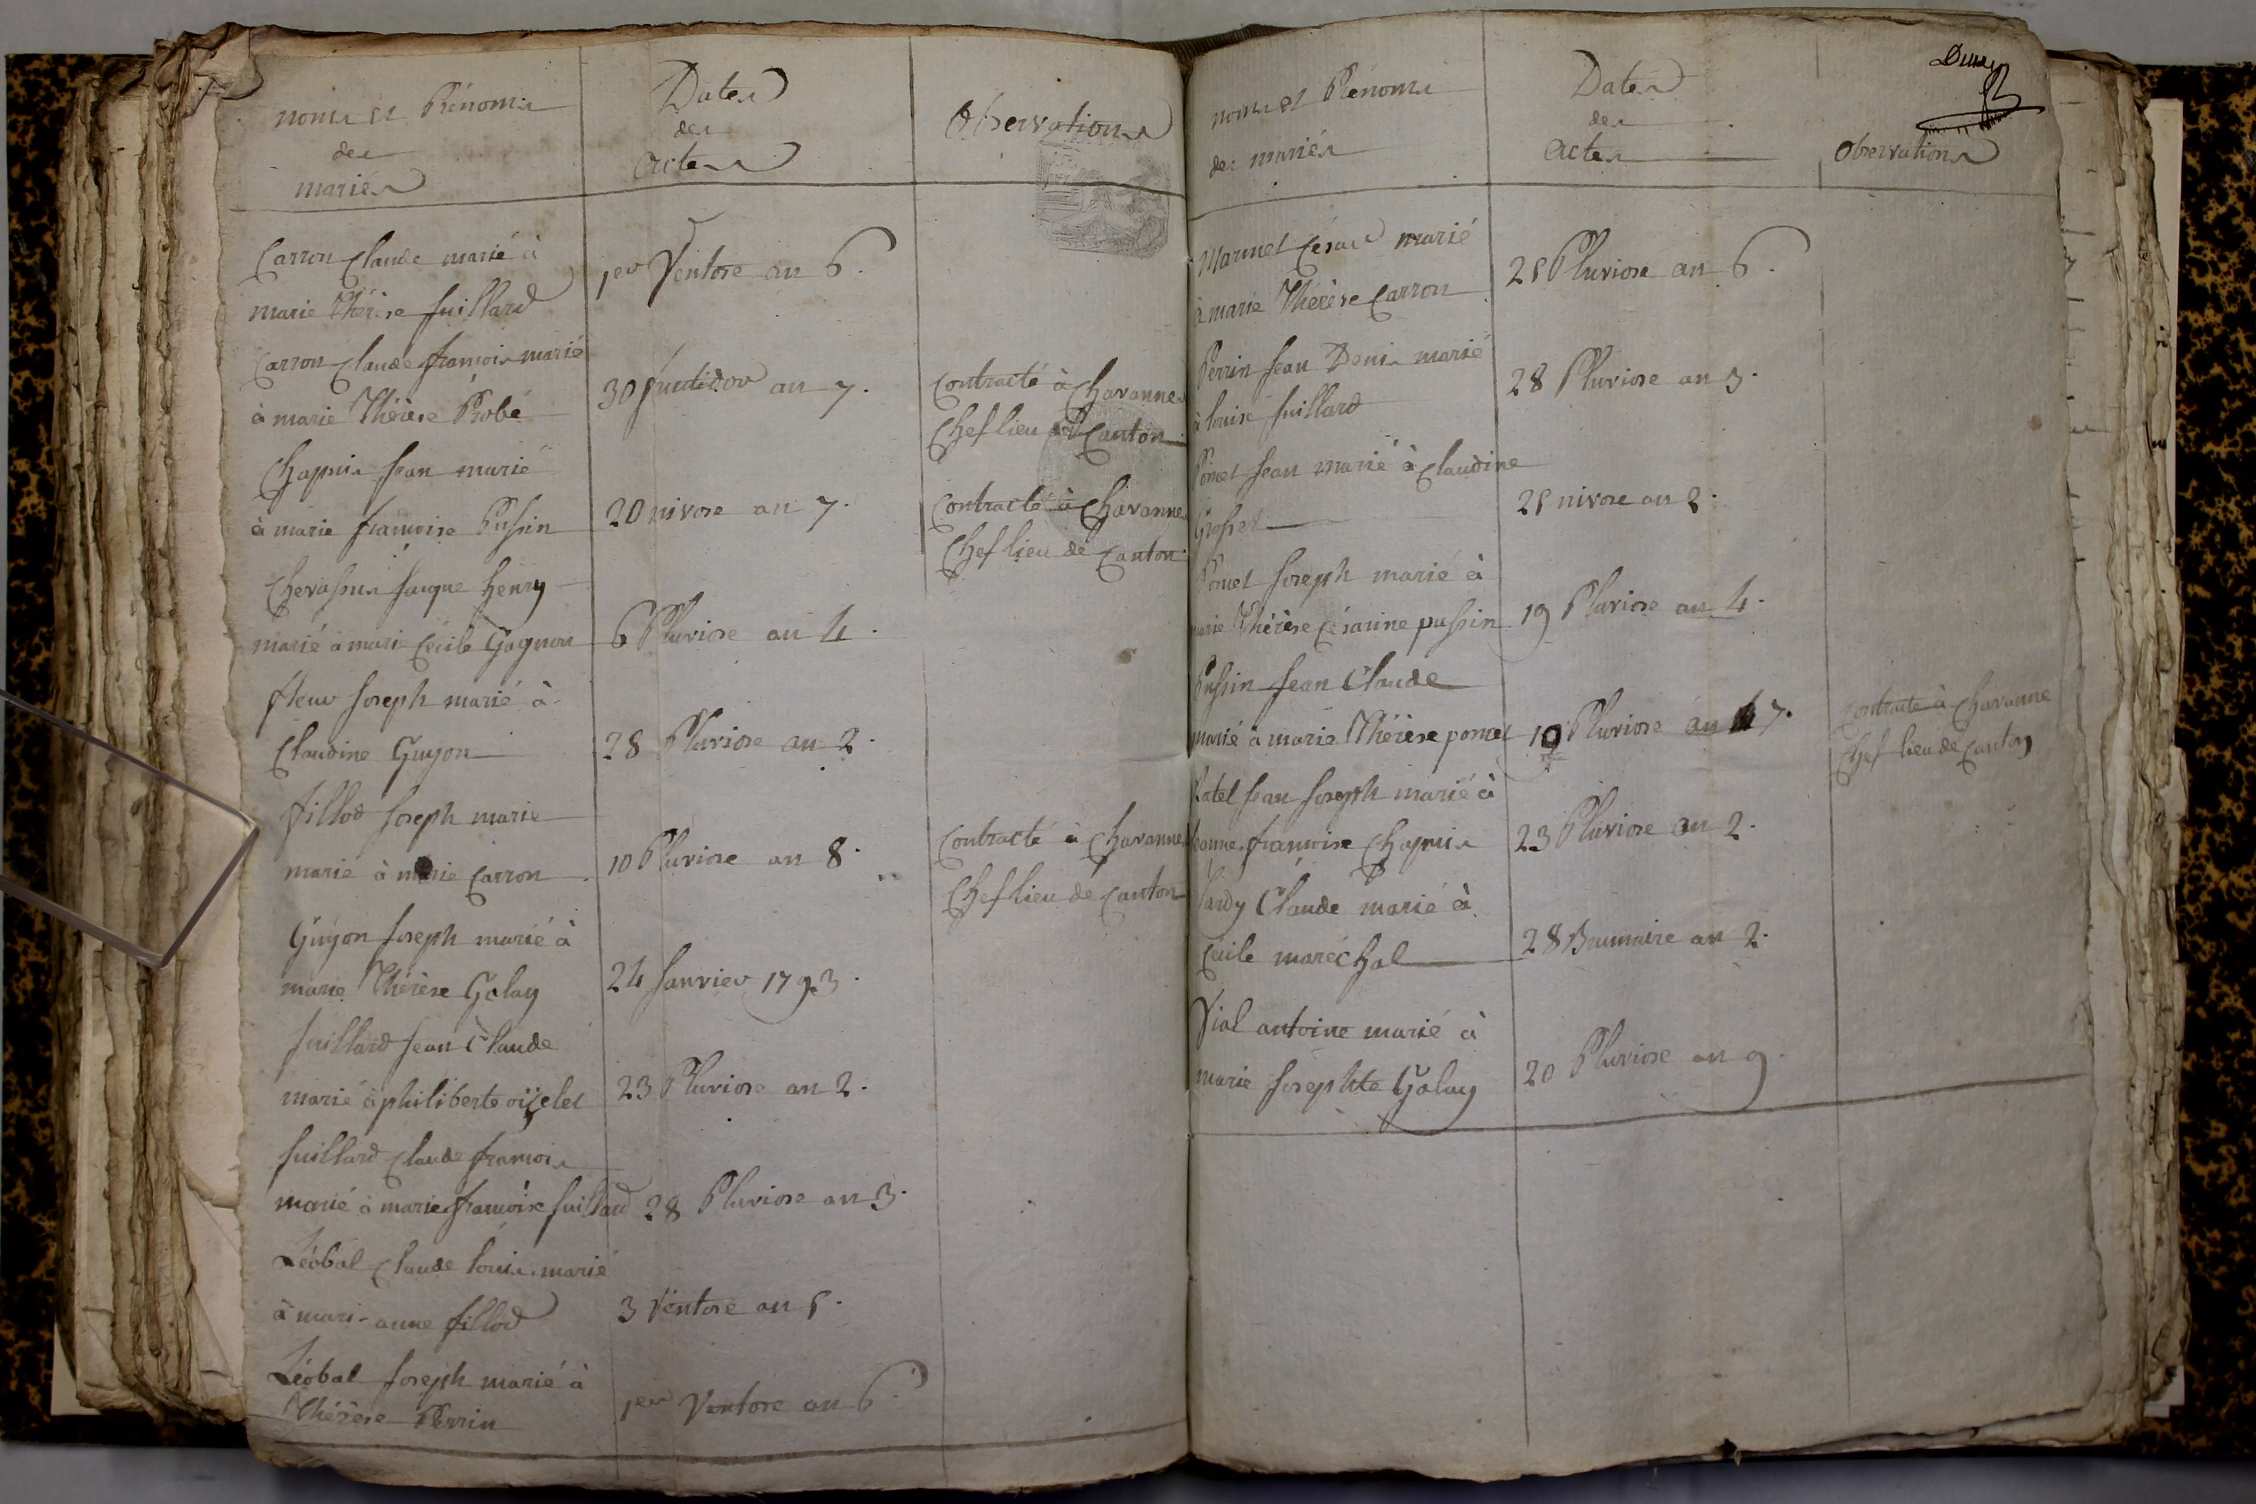 noms et Prénoms
des
mariés
Dates
des
actes
Observations
Carron Claude marié à
marie Thérèse fuillard
1er Ventose an 6.
Carron Claude françois marié
à marie Thérèse Probé
30 fructidor an 7.
Contracté à Chavannes
Chef lieu de Canton
Chapuis jean marié
à marie françoise Pussin
20 nivose an 7.
Contracté à Chavannes
Chef lieu de Canton
Chevassus jacque henry
marié à marie Cécile Gagnon
6 Pluviose an 4.
fleur joseph marié à
Claudine Guyon
28 Pluviose an 2.
fillod joseph marie
marié à marie Carron
10 Pluviose an 8.
Contracté à Chavannes
Chef lieu de Canton
Guyon joseph marié à
marie Thérèse Golay
24 janvier 1793.
juillard jean Claude
marié à philiberte
23 Pluviose an 2.
juillard Claude françois
marié à marie françoise juillard
28 Pluviose an 3.
Léobal Claude louis marié
à marie anne fillod
3 Ventose an 5.
Léobal joseph marié à
Thérèse Perrin
1er Ventose an 6
noms et Prénoms
des mariés
Dates
des
actes
Observations
Marmet César marié
à marie Thérèse Carron
25 Pluviose an 6.
Perrin jean Denis marié
à louise juillard
28 Pluviose an 3.
Pomet jean marié à Claudine
Grosset
25 nivose an 2.
Pomet joseph marié à
marie Thérèse Césarine pussin
19 Pluviose an 4.
Pussin jean Claude
marié à marie Thérèse pomet
10 Pluviose an 7.
Contracté à Chavanne
Chef lieu de Canton
Ratel jean joseph marié à
jeanne françoise Chapuis
23 Pluviose an 2.
tardy Claude marié à
Cécile maréchal
28 Brumaire an 2.
Vial antoine marié à
marie josephte Golay
20 Pluviose an 9.